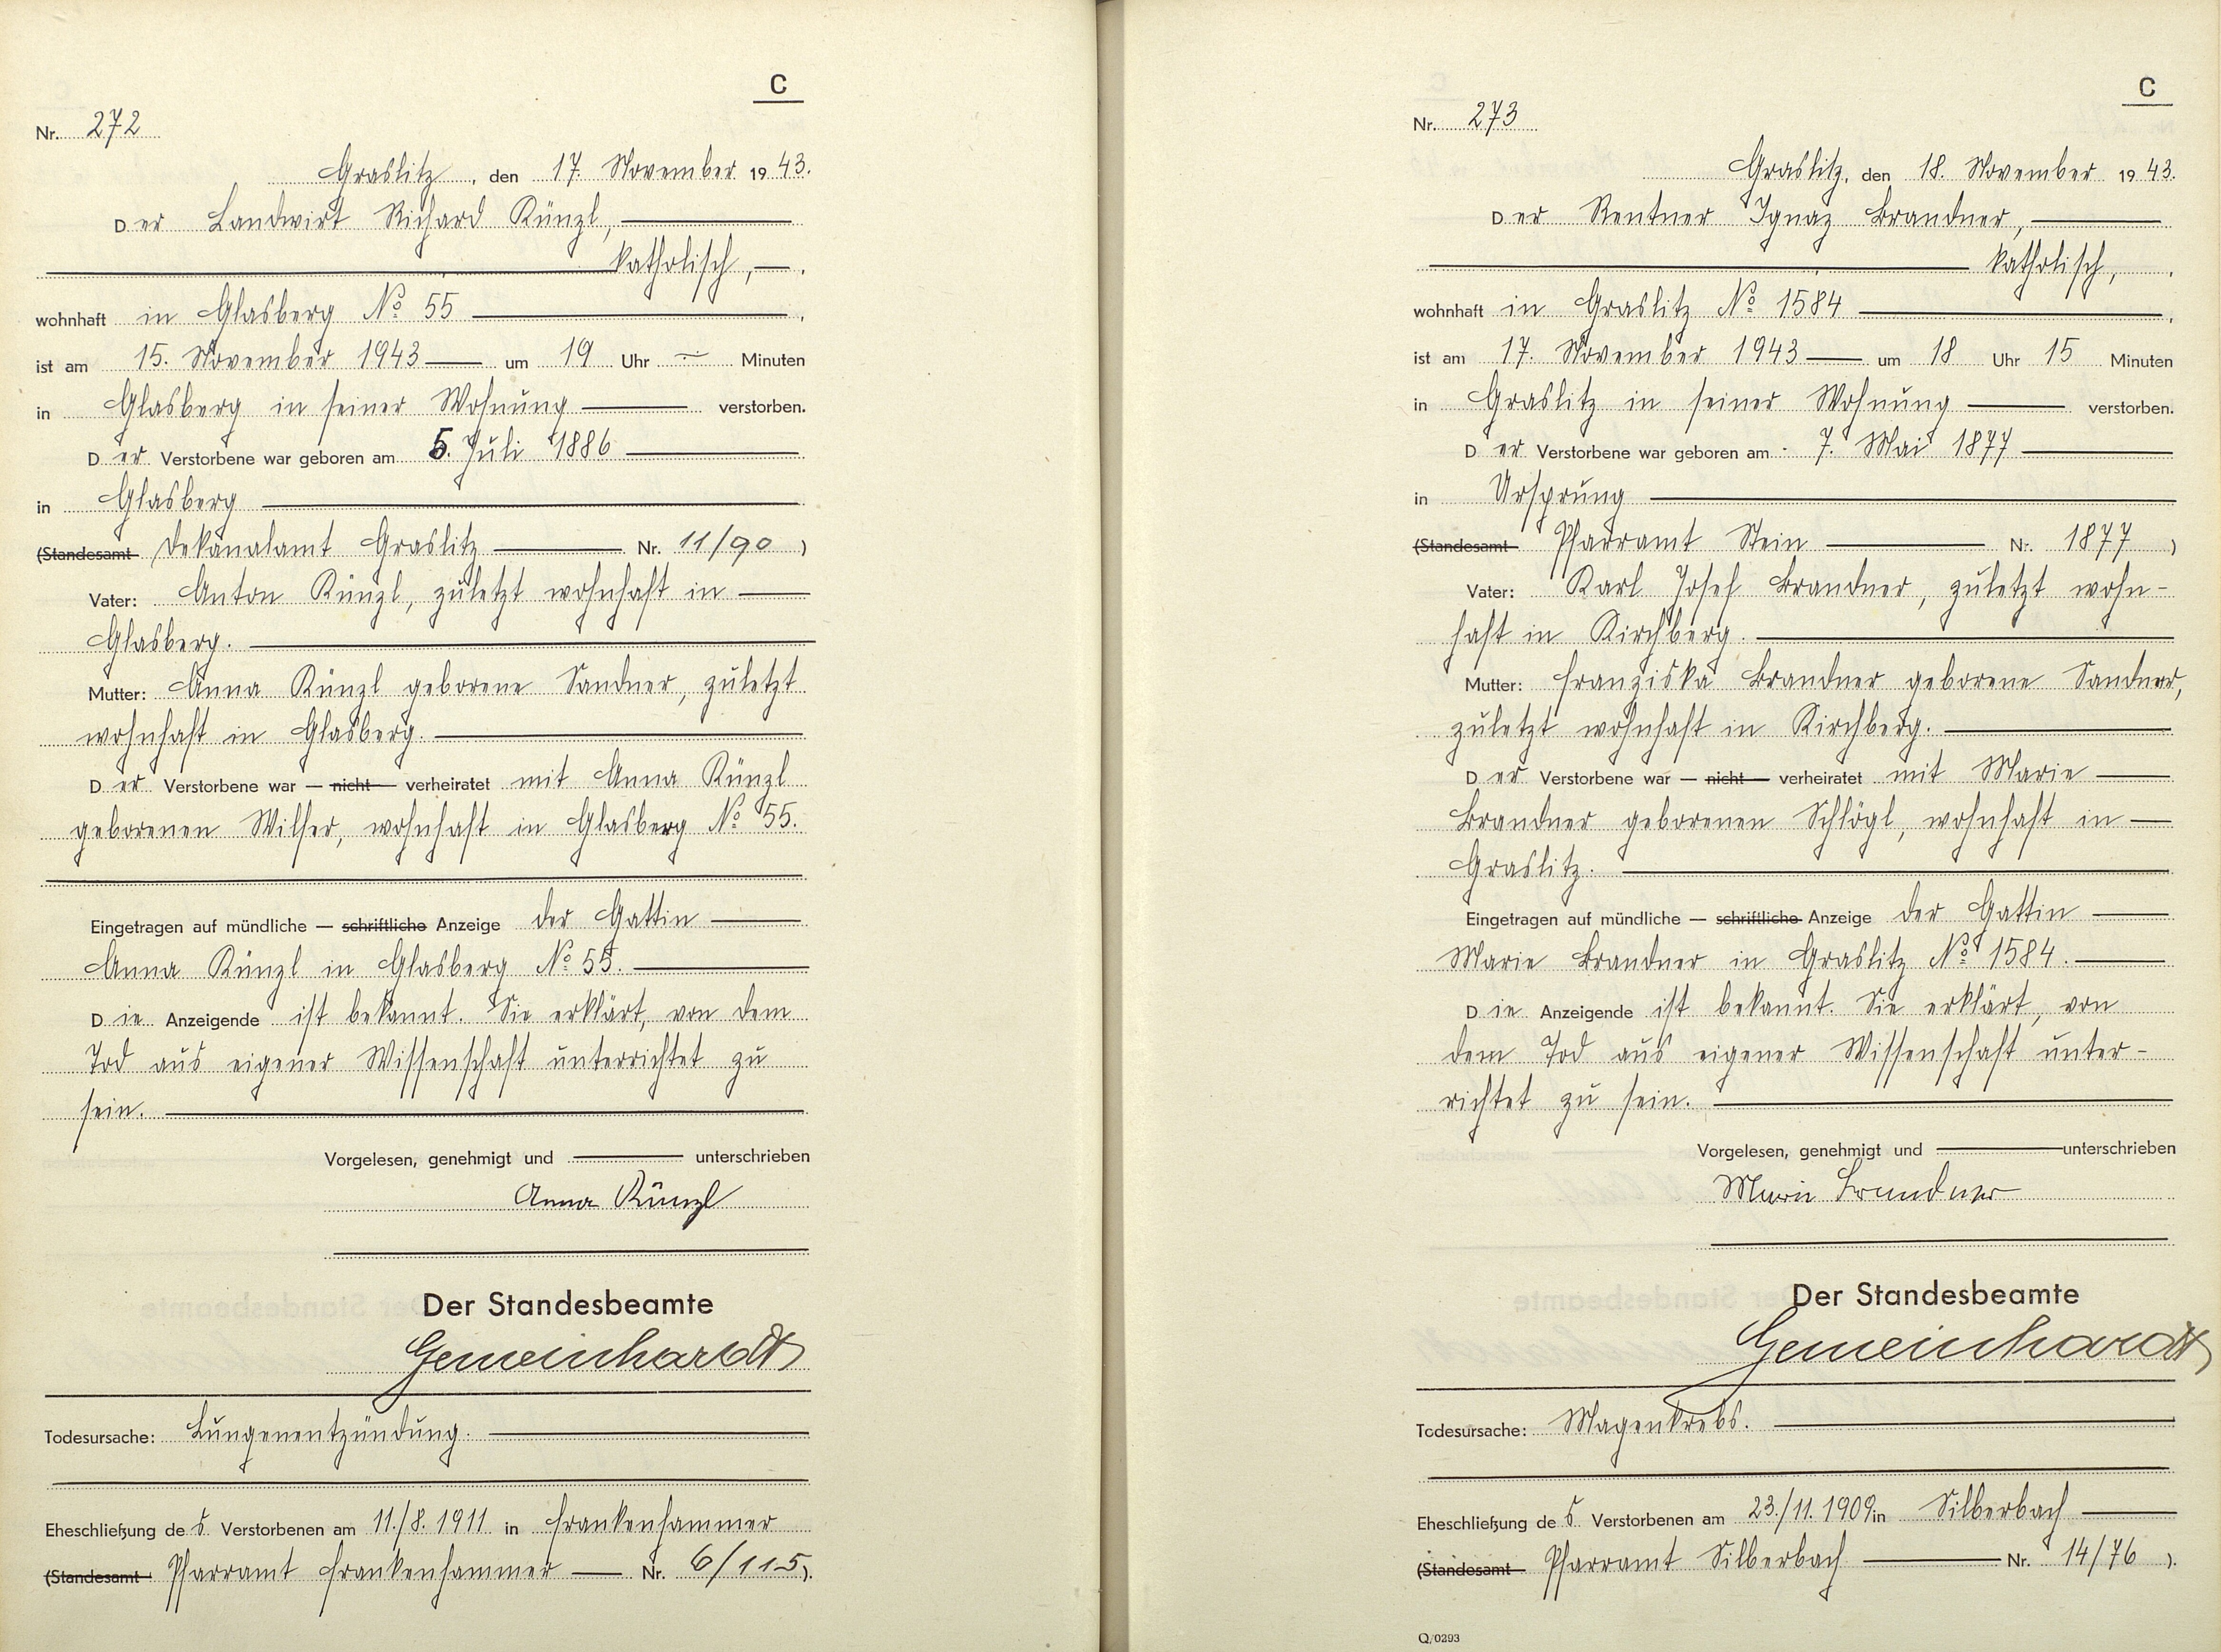 C
Nr. 272
Graslitz, den 17. November 1943.
Der Landwirt Richard Künzl,
katholisch,
wohnhaft in Glasberg No 55
ist am 15. November 1943 um 19 Uhr — Minuten
in Glasberg in seiner Wohnung verstorben.
Der Verstorbene war geboren am 5. Juli 1886
in Glasberg
(Standesamt Dekanalamt Graslitz Nr. 11/90)
Vater: Anton Künzl, zuletzt wohnhaft in
Glasberg.
Mutter: Anna Künzl geborene Sandner, zuletzt
wohnhaft in Glasberg.
Der Verstorbene war — nicht — verheiratet mit Anna Künzl
geborenen Wilfer, wohnhaft in Glasberg No 55.
Eingetragen auf mündliche — schriftliche Anzeige der Gattin
Anna Künzl in Glasberg No 55.
Die Anzeigende ist bekannt. Sie erklärt, von dem
Tod aus eigener Wissenschaft unterrichtet zu
sein.
Vorgelesen, genehmigt und unterschrieben
Anna Künzl
Der Standesbeamte
Gemeinhardt
Todesursache: Lungenentzündung.
Eheschließung des Verstorbenen am 11./8. 1911 in Frankenhammer
(Standesamt Pfarramt Frankenhammer Nr. 6/115).
C
Nr. 273
Graslitz, den 18. November 1943.
Der Rentner Ignaz Brandner,
katholisch,
wohnhaft in Graslitz No 1584
ist am 17. November 1943 um 18 Uhr 15 Minuten
in Graslitz in seiner Wohnung verstorben.
Der Verstorbene war geboren am 7. Mai 1877
in Ursprung
(Standesamt Pfarramt Stein Nr. 1877)
Vater: Karl Josef Brandner, zuletzt wohn-
haft in Kirchberg.
Mutter: Franziska Brandner geborene Sandner,
zuletzt wohnhaft in Kirchberg.
Der Verstorbene war — nicht — verheiratet mit Marie
Brandner geborenen Schlögl, wohnhaft in
Graslitz.
Eingetragen auf mündliche — schriftliche Anzeige der Gattin
Marie Brandner in Graslitz No 1584.
Die Anzeigende ist bekannt. Sie erklärt, von
dem Tod aus eigener Wissenschaft unter-
richtet zu sein.
Vorgelesen, genehmigt und unterschrieben
Marie Brandner
Der Standesbeamte
Gemeinhardt
Todesursache: Magenkrebs.
Eheschließung des Verstorbenen am 23./11. 1909 in Silberbach
(Standesamt Pfarramt Silberbach Nr. 14/76).
Q/0293